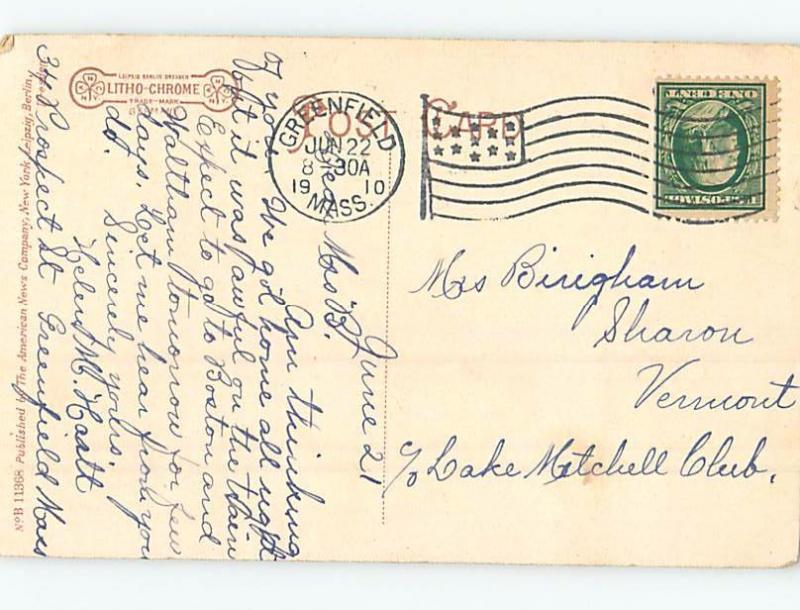 LEIPZIG BERLIN DRESDEN
LITHO-CHROME
TRADE-MARK
POST CARD
GREENFIELD
JUN 22
8-30A
1910
MASS.
ONE CENT
U.S. POSTAGE
June 21
Dear Mrs B.
Am thinking
of you. We got home all right
but it was awful on the train
Expect to go to Boston and
Waltham tomorrow for few
days. Let me hear from you
do.
Sincerely yours,
Helen M.
34 Prospect St Greenfield Mass
Mrs Bingham
Sharon
Vermont
c/o Lake Mitchell Club.
No B 11368 Published by The American News Company, New York, Leipzig, Berlin,